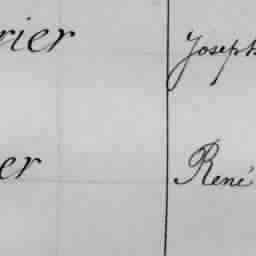 rier Joseph
er René